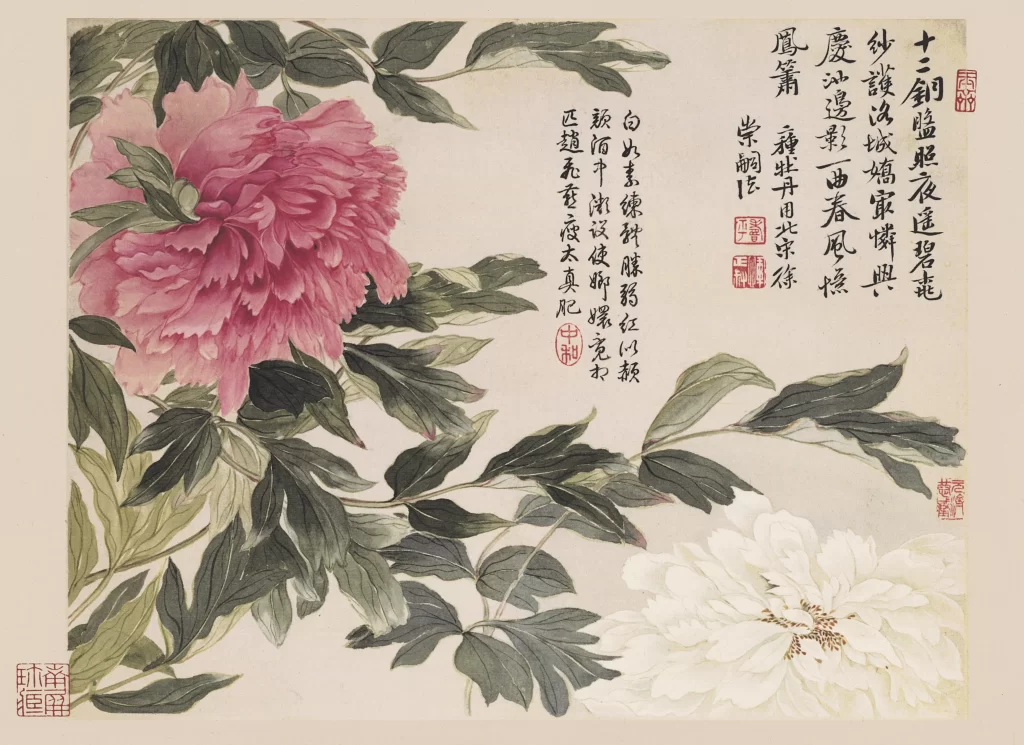 十二銅盤照夜遥碧桃
紗護洛城嬌最憐興
慶池邊影一曲春風憶
鳳簫 種牡丹用北宋徐
崇嗣法
白如素練勝紅似頳
顏酒中潮設使娜嬛竟相
匹趙飛燕瘦太真肥
中和